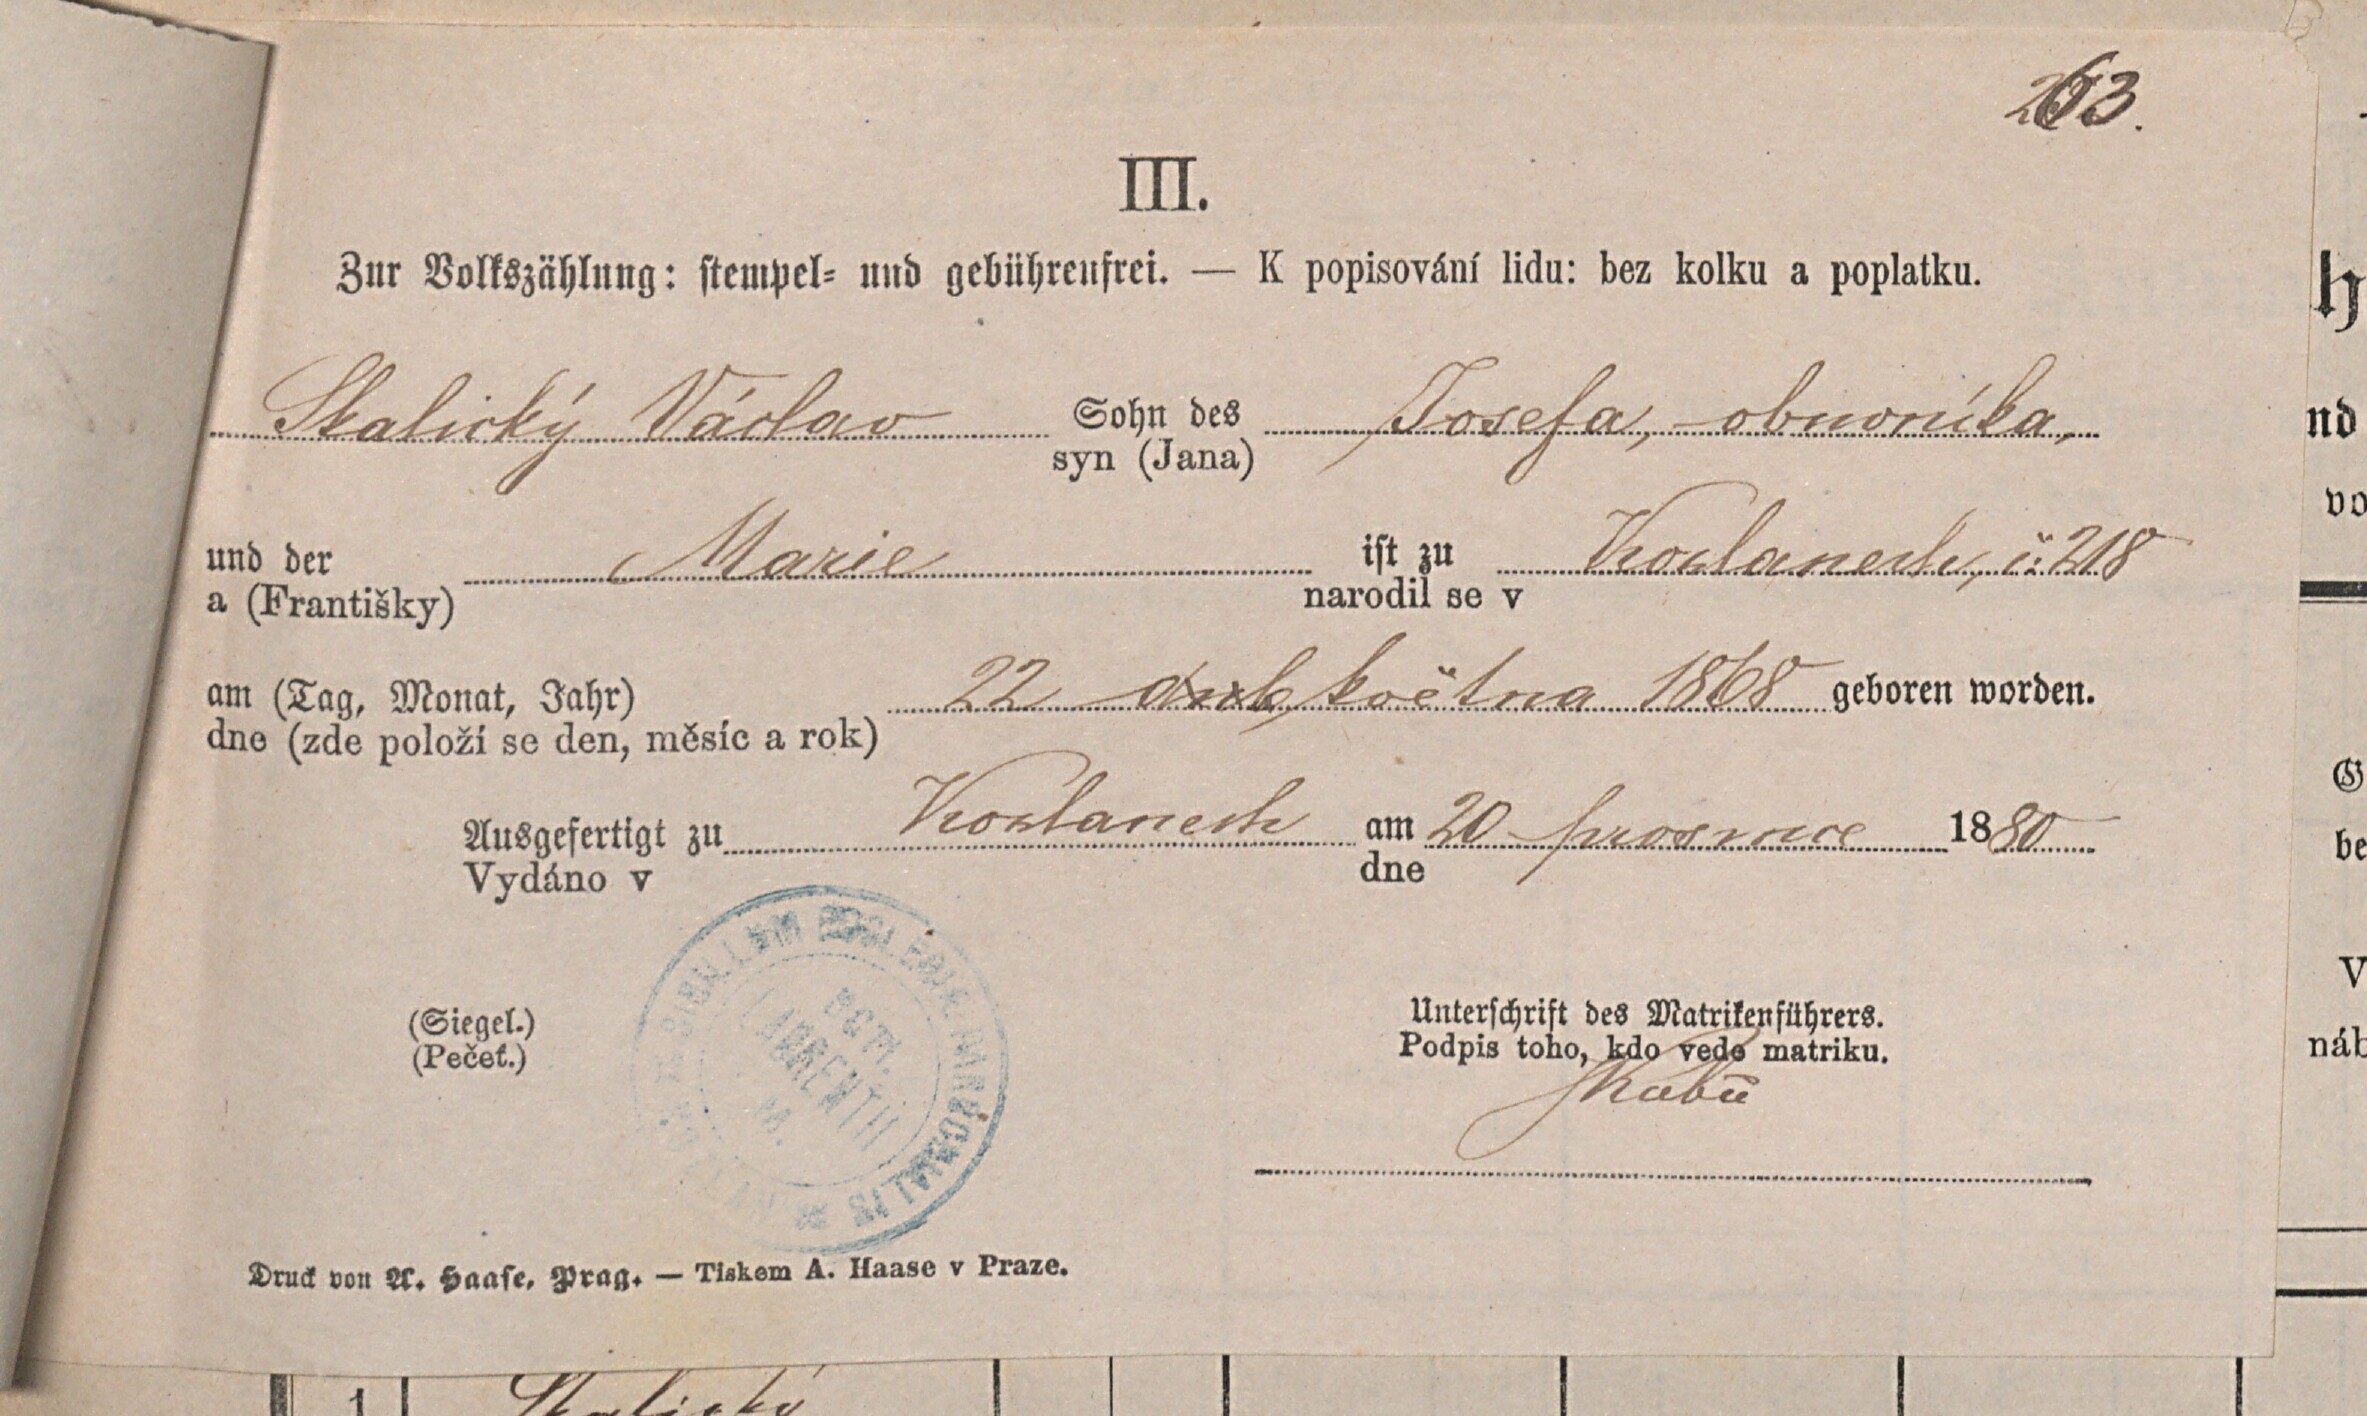 263.
III.
Zur Volkszählung: stempel= und gebührenfrei. — K popisování lidu: bez kolku a poplatku.
Skalický Václav Sohn des Josefa, obuvníka,
syn (Jana)
und der Marie ist zu Kožlanech, č: 218
a (Františky) narodil se v
am (Tag, Monat, Jahr) 22 května 1868 geboren worden.
dne (zde položí se den, měsíc a rok)
Ausgefertigt zu Kožlanech am 20 prosince 1880
Vydáno v dne
SIGILLUM ECCLESIAE PAROCHIALIS
SCTI.
LAURENTII
M.
(Siegel.) Unterschrift des Matrikenführers.
(Pečeť.) Podpis toho, kdo vede matriku.
Druck von A. Haase, Prag. — Tiskem A. Haase v Praze.
h
nd
vo
G
be
V
náb
1 Skalický